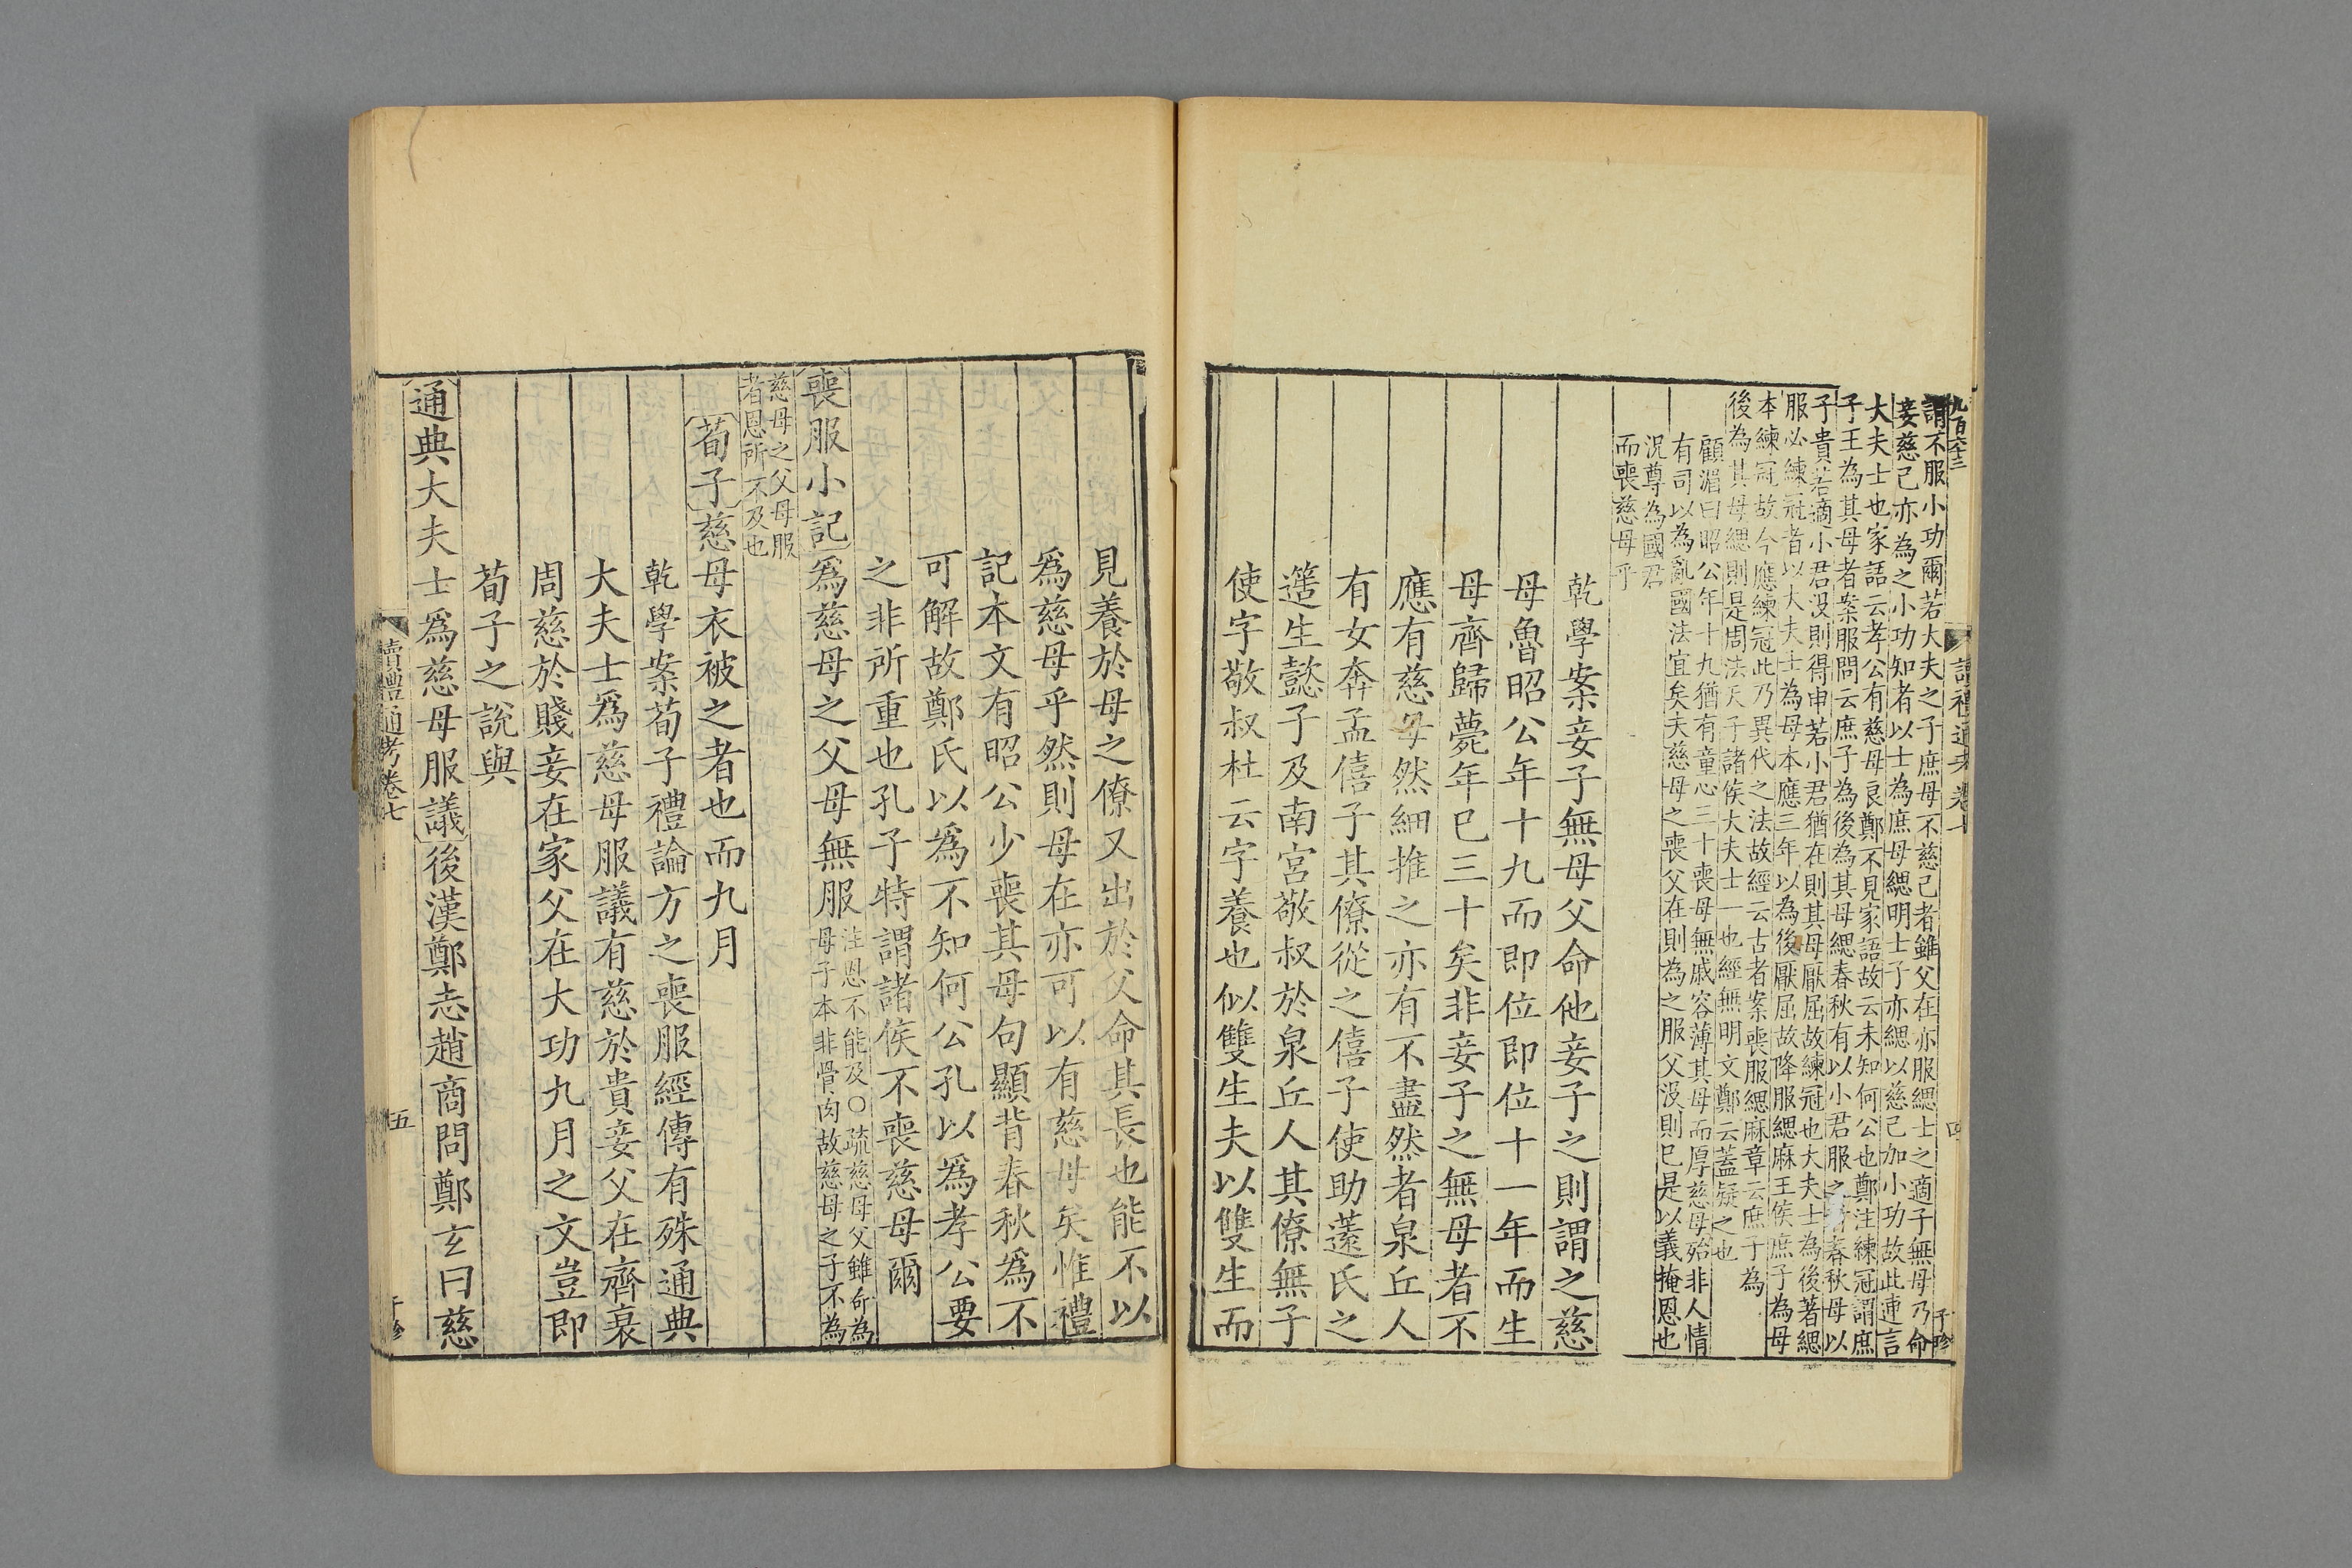 九百六十三
讀禮通考卷七
四
子珍
謂不服小功爾若大夫之子庶母不慈己者雖父在亦服緦士之適子無母乃命
妾慈己亦為之小功知者以士為庶母緦明士子亦緦以慈己加小功故此連言
大夫士也家語云孝公有慈母良鄭不見家語故云未知何公也鄭注練冠謂庶
子王為其母者案服問云庶子為後為其母緦春秋有以小君服之者春秋母以
子貴若適小君沒則得申若小君猶在則其母厭屈故練冠也大夫士為後著緦
服必練冠者以大夫士為母本應三年以為後厭屈故降服緦麻王侯庶子為母
本練冠故今應練冠此乃異代之法故經云古者案喪服緦麻章云庶子為
後為其母緦則是周法天子諸侯大夫士一也經無明文鄭云蓋疑之也
顧湄曰昭公年十九猶有童心三十喪母無戚容薄其母而厚慈母殆非人情
有司以為亂國法宜矣夫慈母之喪父在則為之服父沒則已是以義掩恩也
況尊為國君
而喪慈母乎
乾學案妾子無母父命他妾子之則謂之慈
母魯昭公年十九而即位即位十一年而生
母齊歸薨年已三十矣非妾子之無母者不
應有慈母然細推之亦有不盡然者泉丘人
有女奔孟僖子其僚從之僖子使助薳氏之
簉生懿子及南宮敬叔於泉丘人其僚無子
使字敬叔杜云字養也似雙生夫以雙生而
見養於母之僚又出於父命其長也能不以
爲慈母乎然則母在亦可以有慈母矣惟禮
記本文有昭公少喪其母句顯背春秋為不
可解故鄭氏以爲不知何公孔以爲孝公要
之非所重也孔子特謂諸侯不喪慈母爾
喪服小記爲慈母之父母無服注恩不能及○疏慈母父雖命為
母子本非骨肉故慈母之子不為
慈母之父母服
者恩所不及也
荀子慈母衣被之者也而九月
乾學案荀子禮論方之喪服經傳有殊通典
大夫士爲慈母服議有慈於貴妾父在齊衰
周慈於賤妾在家父在大功九月之文豈即
荀子之說與
通典大夫士爲慈母服議後漢鄭志趙商問鄭玄曰慈
讀禮通考卷七
五
子珍